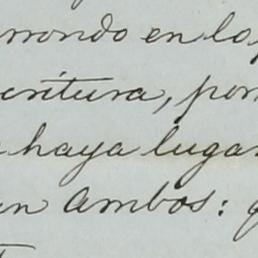 rrondo en los
critura, por
haya lugar
en ambos: